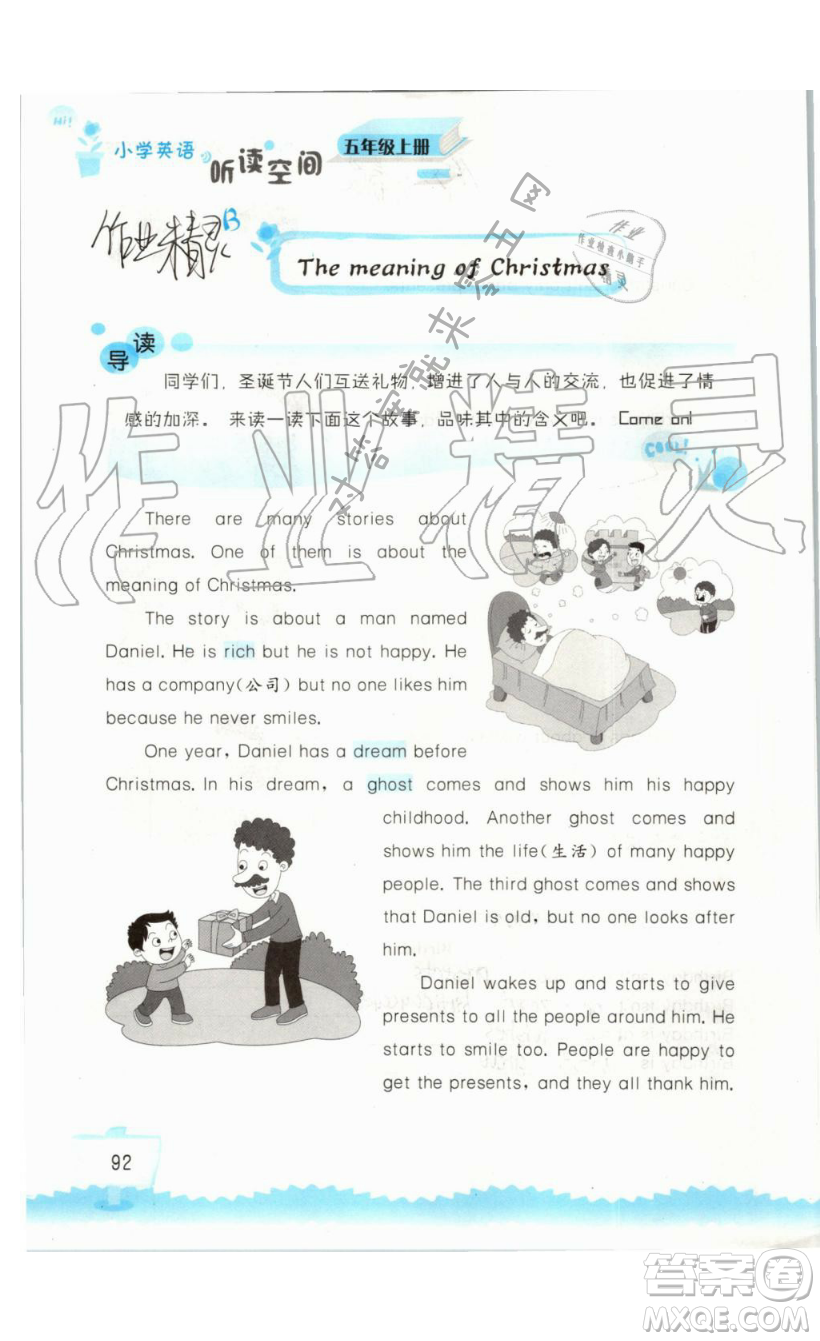 Hi!
小学英语
听读空间
五年级上册
作业精灵B
The meaning of Christmas
作业
作业检查小助手
精灵
对答案就来零五网
导读
同学们，圣诞节人们互送礼物，增进了人与人的交流，也促进了情
感的加深。来读一读下面这个故事，品味其中的含义吧。Come on!
COOL!
作业精灵
There are many stories about
Christmas. One of them is about the
meaning of Christmas.
The story is about a man named
Daniel. He is rich but he is not happy. He
has a company(公司) but no one likes him
because he never smiles.
One year, Daniel has a dream before
Christmas. In his dream, a ghost comes and shows him his happy
childhood. Another ghost comes and
shows him the life(生活) of many happy
people. The third ghost comes and shows
that Daniel is old, but no one looks after
him.
Daniel wakes up and starts to give
presents to all the people around him. He
starts to smile too. People are happy to
get the presents, and they all thank him.
92
答案圈
MXQE.COM